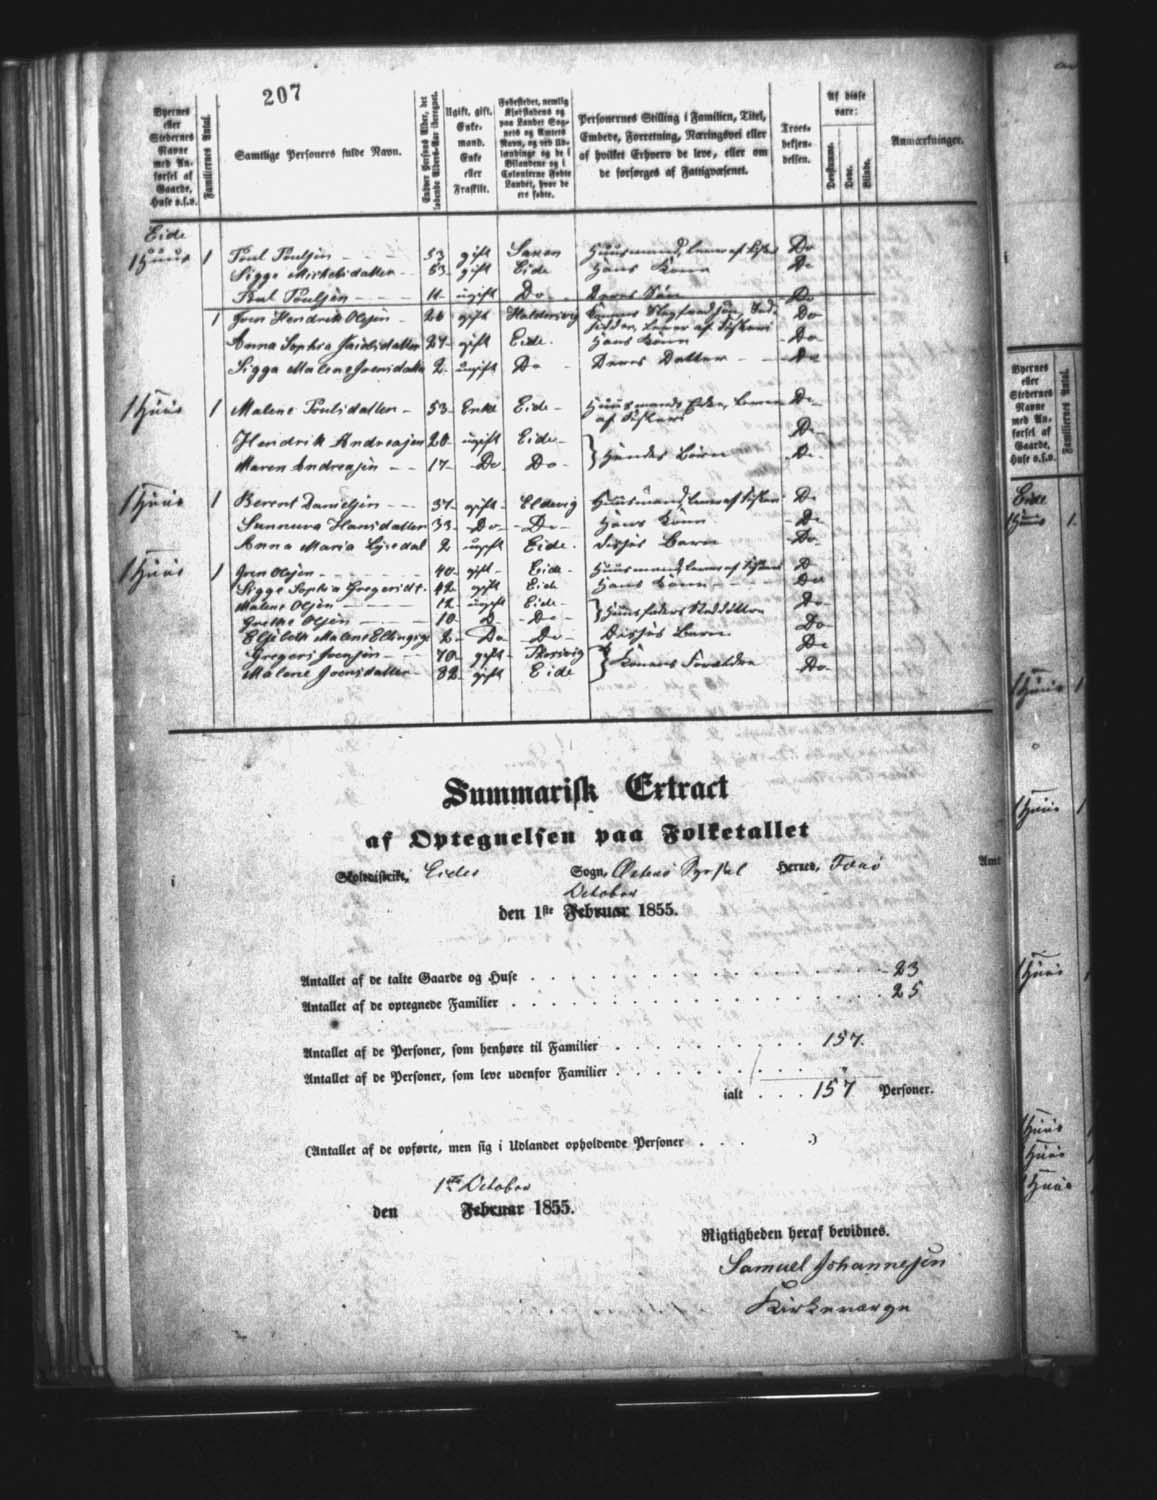 207
Byernes eller Stedernes Navne med Anførsel af Gaarde, Huse o.s.v.
Familiernes Antal.
Samtlige Personers fulde Navn.
Enhver Persons Alder, det løbende Alders-Aar iberegnet.
Ugift, gift, Enkemand, Enke eller Fraskilt.
Fødestedet, nemlig Kjøbstadens og paa Landet Sognets og Amtets Navn, og ved Udlændinge og de i Bilandene og i Colonierne Fødte Landet, hvor de ere fødte.
Personernes Stilling i Familien, Titel, Embede, Forretning, Næringsvei eller af hvilket Erhverv de leve, eller om de forsørges af Fattigvæsenet.
Troesbekjendelsen.
Af disse vare:
Døvstumme.
Døve.
Blinde.
Anmærkninger.
Eide
1 Huus 1 Poul Poulsen 53 gift Huusmand, lever af Do
Sigge Mickelsdatter 53 gift Eide Hans Kone Do
Poul Poulsen 11 ugift Do Deres Søn Do
1 Joen Hendrik Olesen 26 gift Haldersvig Do
Anna Sophia 27 gift Eide Hans Kone Do
Sigga Malene Joensdatter 2 ugift Do Deres Datter Do
1 Huus 1 Malene Poulsdatter 53 Enke Eide Huusmands Enke, lever af Fiskeri Do
Hendrik Andreasen 20 ugift Eide Do
Maren Andreasen 17 Do Do Hendes Børn Do
1 Huus 1 Berent Danielsen 37 gift Elduvig Huusmand, lever af Fiskeri Do
Sunneva Hansdatter 33 Do Do Hans Kone Do
Anna Maria 2 ugift Eide Disses Barn Do
1 Huus 1 Joen Olesen 40 gift Eide Huusmand, lever af Fiskeri Do
Sigge Sophia Gregersdt. 42 gift Eide Hans Kone Do
Malene Olesen 12 ugift Eide Do
Grethe Olesen 10 Do Do Do
Elsebeth Malene 2 Do Do Disses Barn Do
Gregers Joensen 70 gift Do
Malene Joensdatter 82 gift Eide Konens Forældre Do
Summarisk Extract
af Optegnelsen paa Folketallet
Skoledistrikt, Eides Sogn, Østerø Syssel Herred, Færø Amt
October
den 1ste Februar 1855.
Antallet af de talte Gaarde og Huse 23
Antallet af de optegnede Familier 25
Antallet af de Personer, som henhøre til Familier 157.
Antallet af de Personer, som leve udenfor Familier "
ialt 157 Personer.
(Antallet af de opførte, men sig i Udlandet opholdende Personer .)
1ste October
den Februar 1855.
Rigtigheden heraf bevidnes.
Samuel Johannesen
Kirkeværge
Byernes eller Stedernes Navne med Anførsel af Gaarde, Huse o.s.v.
Familiernes Antal.
Eide
1 Huus 1.
1 Huus 1
1 Huus 1
1 Huus
1 Huus
1 Huus
1 Huus